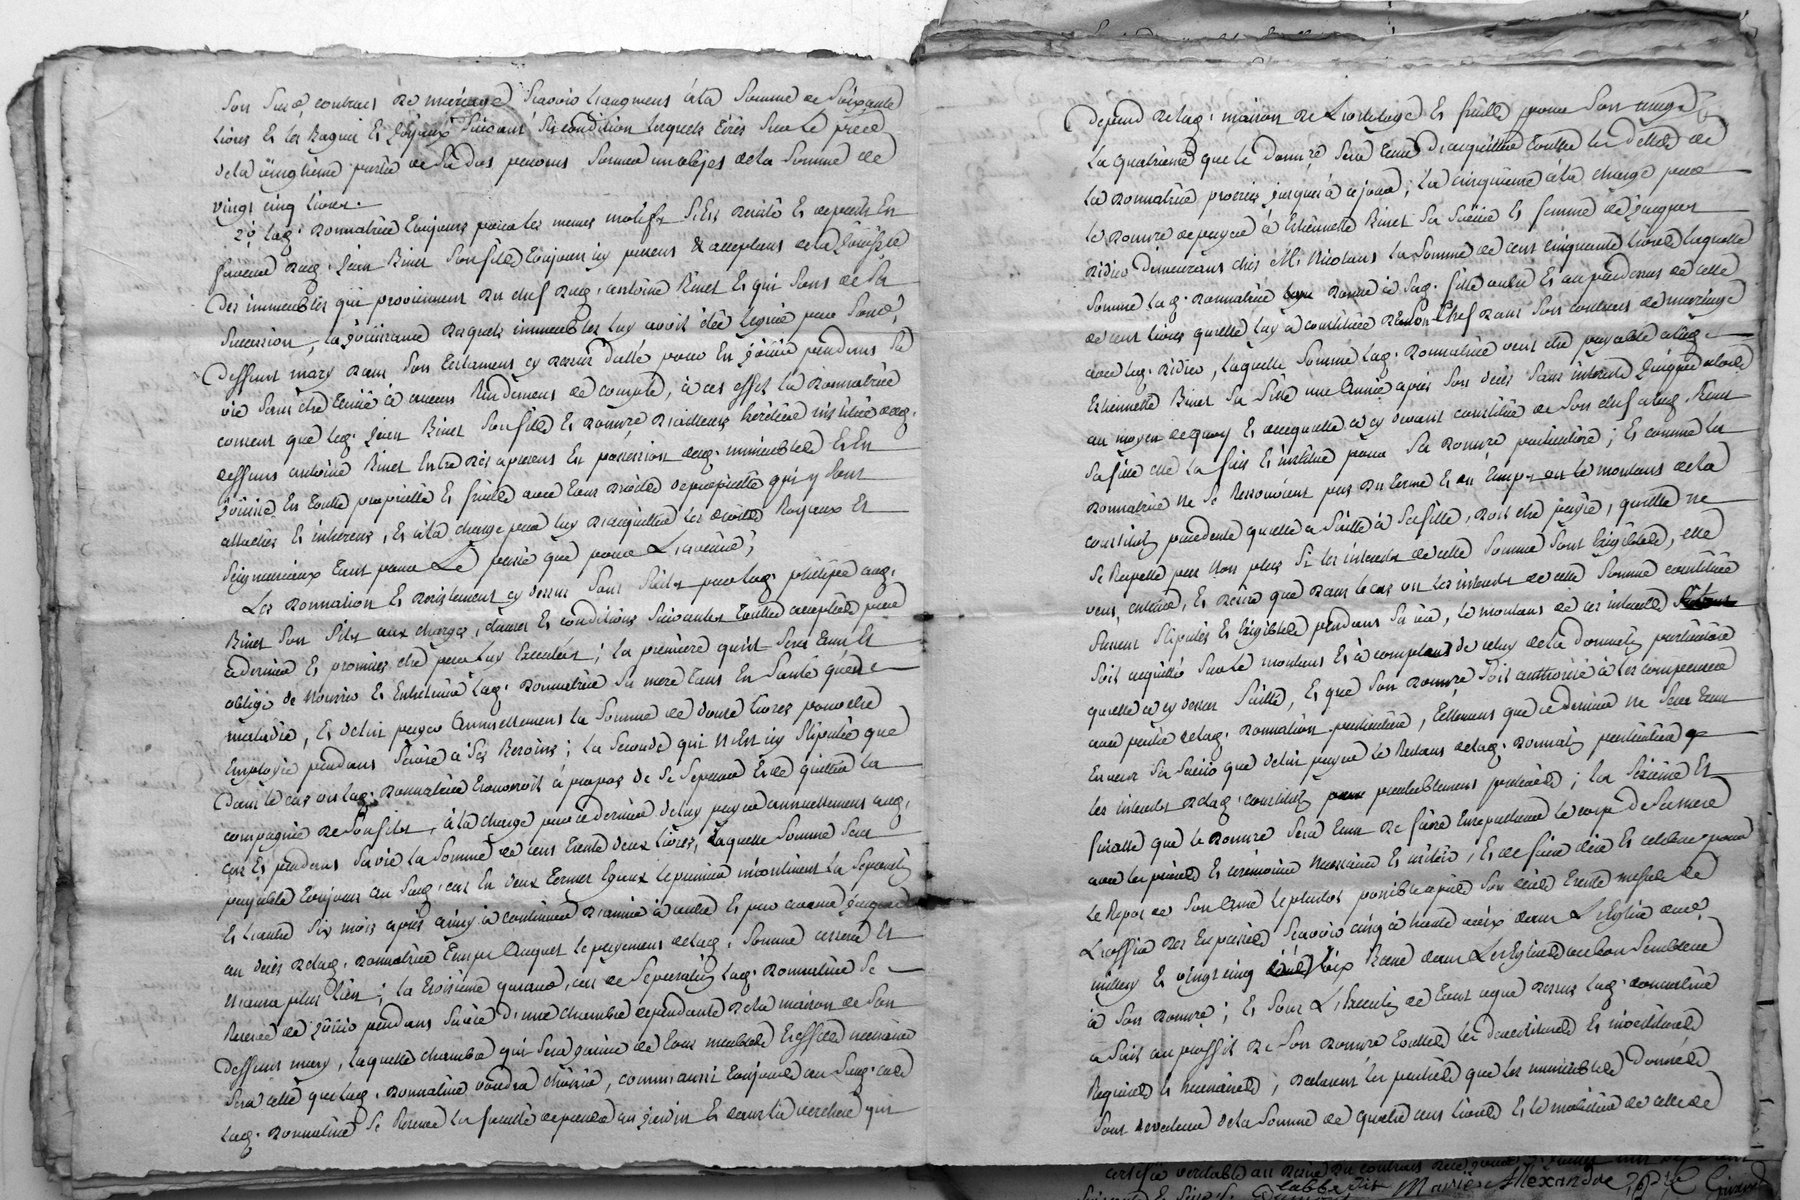 son susd contract de mariage scavoir l'augment à la somme de soixante
livres et les bagues et joyaux suivant sa condition lesquels tirés sur le pied
de la vingtième partie de sa dot peuvent former un objet de la somme de
vingt cinq livres.
2° lad. donnatrice toujours pour les memes motifs s'est demise et departie en
faveur dud. jean Binet son fils toujours icy present & acceptant de la jouissce
des immeubles qui proviennent du chef dud. antoine Binet et qui sont de sa
succession, la jouissance desquels immeubles luy avoit été leguée par sond.
deffunt mary dans son testament cy dessus datté pour en jouir pendant sa
vie sans etre tenue à aucun rendement de compte, à cet effet la donnatrice
consent que led. jean Binet son fils et donnre d'ailleurs heritier institué dud.
deffunt antoine Binet entre dès apresent en possession desd. immeubles et en
jouisse en toutte proprieté et fruits avec tous droits de proprieté qui y sont
attachés et inherens, et à la charge pour luy d'acquitter les droits Royaux et
seigneuriaux tant pour le passé que pour l'avenir;
Les donnation et desistement cy dessus sont faits par lad. philipée aud.
Binet son fils aux charges, clauses et conditions suivantes touttes acceptées par
ce dernier et promises etre par luy executées; la premiere qu'il sera tenu et
obligé de nourrir et entretenir lad. donnatrice sa mere tant en santé qu'en
maladie, et de luy payer annuellement la somme de douze livres pour etre
employée pendant sa vie à ses besoins; la seconde qui n'est icy stipulée que
dans le cas où lad. donnatrice trouveroit à propos de se separer et de quitter la
compagnie de son fils, à la charge par ce dernier de luy payer annuellement aud.
cas et pendant sa vie la somme de cent trente deux livres, laquelle somme sera
payable toujours au susd. cas en deux termes egaux le premier incontinent la separaon
et l'autre six mois après ainsy à continuer d'année à autre et par avance jusques
au decès de lad. donnatrice temps auquel le payement de lad. somme cessera et
n'aura plus lieu; la troisième quaud. cas de separation lad. donnatrice se
reserve de jouir pendant sa vie d'une chambre dependante de la maison de son
deffunt mary, laquelle chambre qui sera garnie de tous meubles et effets necessaires
sera celle que lad. donnatrice voudra choisir, comm'aussi toujours au susd. cas
lad. donnatrice se reserve la faculté de prendre au jardin et dans la verchere qui
depend de lad. maison de l'ortolage et fruits pour son usage
La quatrieme que le donnre sera tenu d'acquitter touttes les dettes de
la donnatrice procrées jusques à ce jour; la cinquieme à la charge par
le donnre de payer à Etiennette Binet sa sœur et femme de jacques
Didier demeurant chés Mr Nicolas la somme de cent cinquante livres laquelle
somme lad. donnatrice donne à sad. fille outre et au pardessus de celle
de cent livres qu'elle luy à constituée de son chef dans son contract de mariage
avec led. Didier, laquelle somme lad. donnatrice veut etre payable à lad.
Etiennette Binet sa fille une année après son decès sans interets jusques alors
au moyen de quoy et de ce qu'elle a cy devant constitué de son chef à lad. Binet
sa fille elle la fait et institue pour sa donnre particuliere; et comme la
donnatrice ne se ressouvient pas du terme et du temps où le montant de la
constitution precedente qu'elle a faitte à sa fille, doit etre payée, qu'elle ne
se rappelle pas non plus si les interets de cette somme sont exigibles, elle
veut, entend, et desire que dans le cas où les interets de cette somme constituée
seroient stipulés et exigibles pendant sa vie, le montant de ces interets
soit acquitté sur le montant et à compte de celuy de la donnaon particuliere
qu'elle a cy dessus faitte, et que son donnre soit authorisé à les compenser
avec partie de lad. donnation particuliere, tellement que ce dernier ne sera tenu
envers sa sœur que de luy payer le restant de lad. donnaon particuliere
les interets de lad. constitution prealablement prelevés; la sixième et
finalle que le donnre sera tenu de faire ensepulturer le corps de sa mere
avec les prieres et ceremonies necessaires et usitées, et de faire dire et celebrer pour
le repos de son ame le plustot possible après son decès trente messes de
l'office des trepassés scavoir cinq à haute voix dans l'Eglise dud.
millery et vingt cinq à voix basse dans les Eglises que bon semblera
à son donnre; et sous l'execution de tout ce que dessus lad. donnatrice
a fait au proffit de son donnre touttes les devestitures et investitures
requises et necessaires; declarent les parties que les immeubles donnés
sont de valeur de la somme de quatre cent livres et le mobilier de celle de
Marie Alexandre